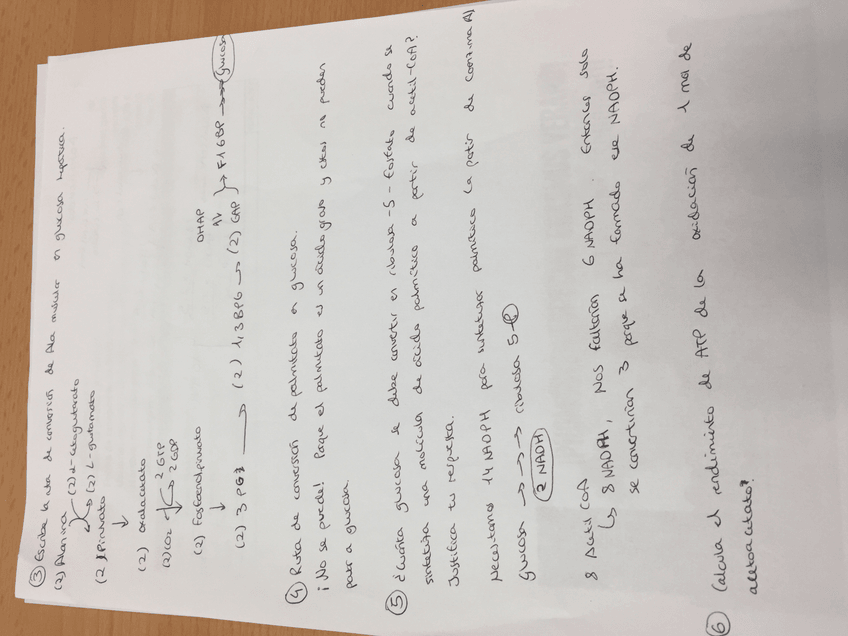 ③ Escribe la ruta de conversión de Ala muscular en glucosa hepática.
(2) Alanina
(2) α-cetoglutarato
(2) L-glutamato
(2) Piruvato
↓
(2) Oxalacetato
(2) CO₂ 2 GTP
2 GDP
(2) Fosfoenolpiruvato
↓
(2) 3 PG → (2) 1,3 BPG → (2) GAP → F16BP → glucosa
DHAP
④ Ruta de conversión de palmitato en glucosa.
¡No se puede! Porque el palmitato es un ácido graso y estos no pueden
pasar a glucosa.
⑤ ¿Cuánta glucosa se debe convertir en ribulosa-5-fosfato cuando se
sintetiza una molécula de ácido palmítico a partir de acetil-CoA?
Justifica tu respuesta.
Necesitamos 14 NADPH para sintetizar palmítico (a partir de coenzima A)
glucosa → → → ribulosa 5-P
2 NADH
8 Acetil CoA
↳ 8 NADPH, Nos faltarían 6 NADPH. Entonces solo
se convertirían 3 porque se ha formado ese NADPH.
⑥ Calcula el rendimiento de ATP de la oxidación de 1 mol de
acetoacetato?